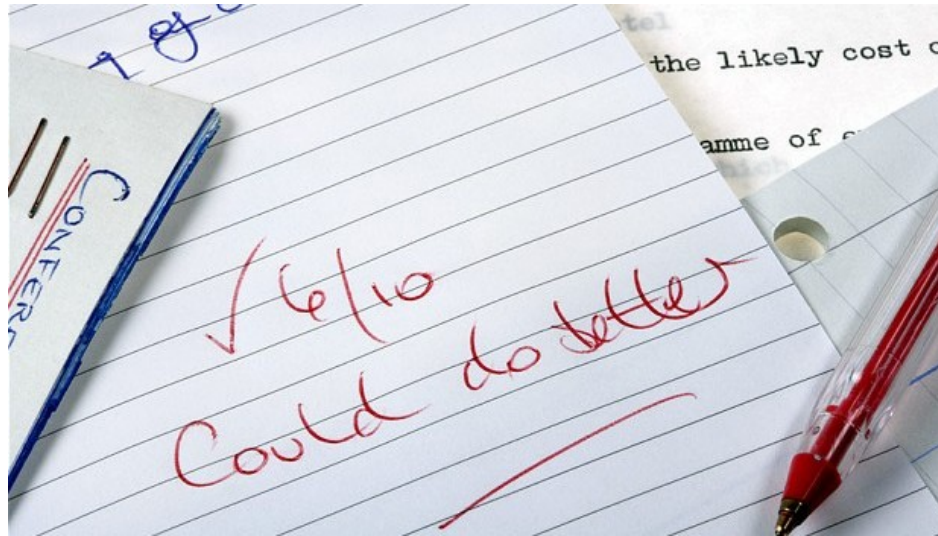 the likely cost
amme of
CONFER
√ 6/10
Could do better